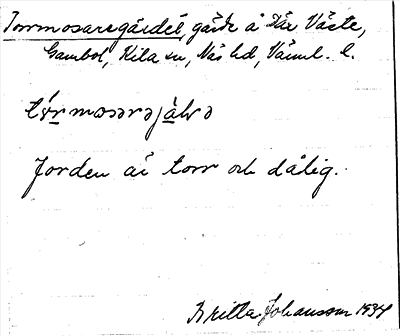 Torrmosaregärdet, gärde å Där Väste,
Gambol, Kila sn, Näs hd, Värml. l.
tɷ́rmosarəjàlvə
Jorden är torr och dålig.
Britta Johansson 1934